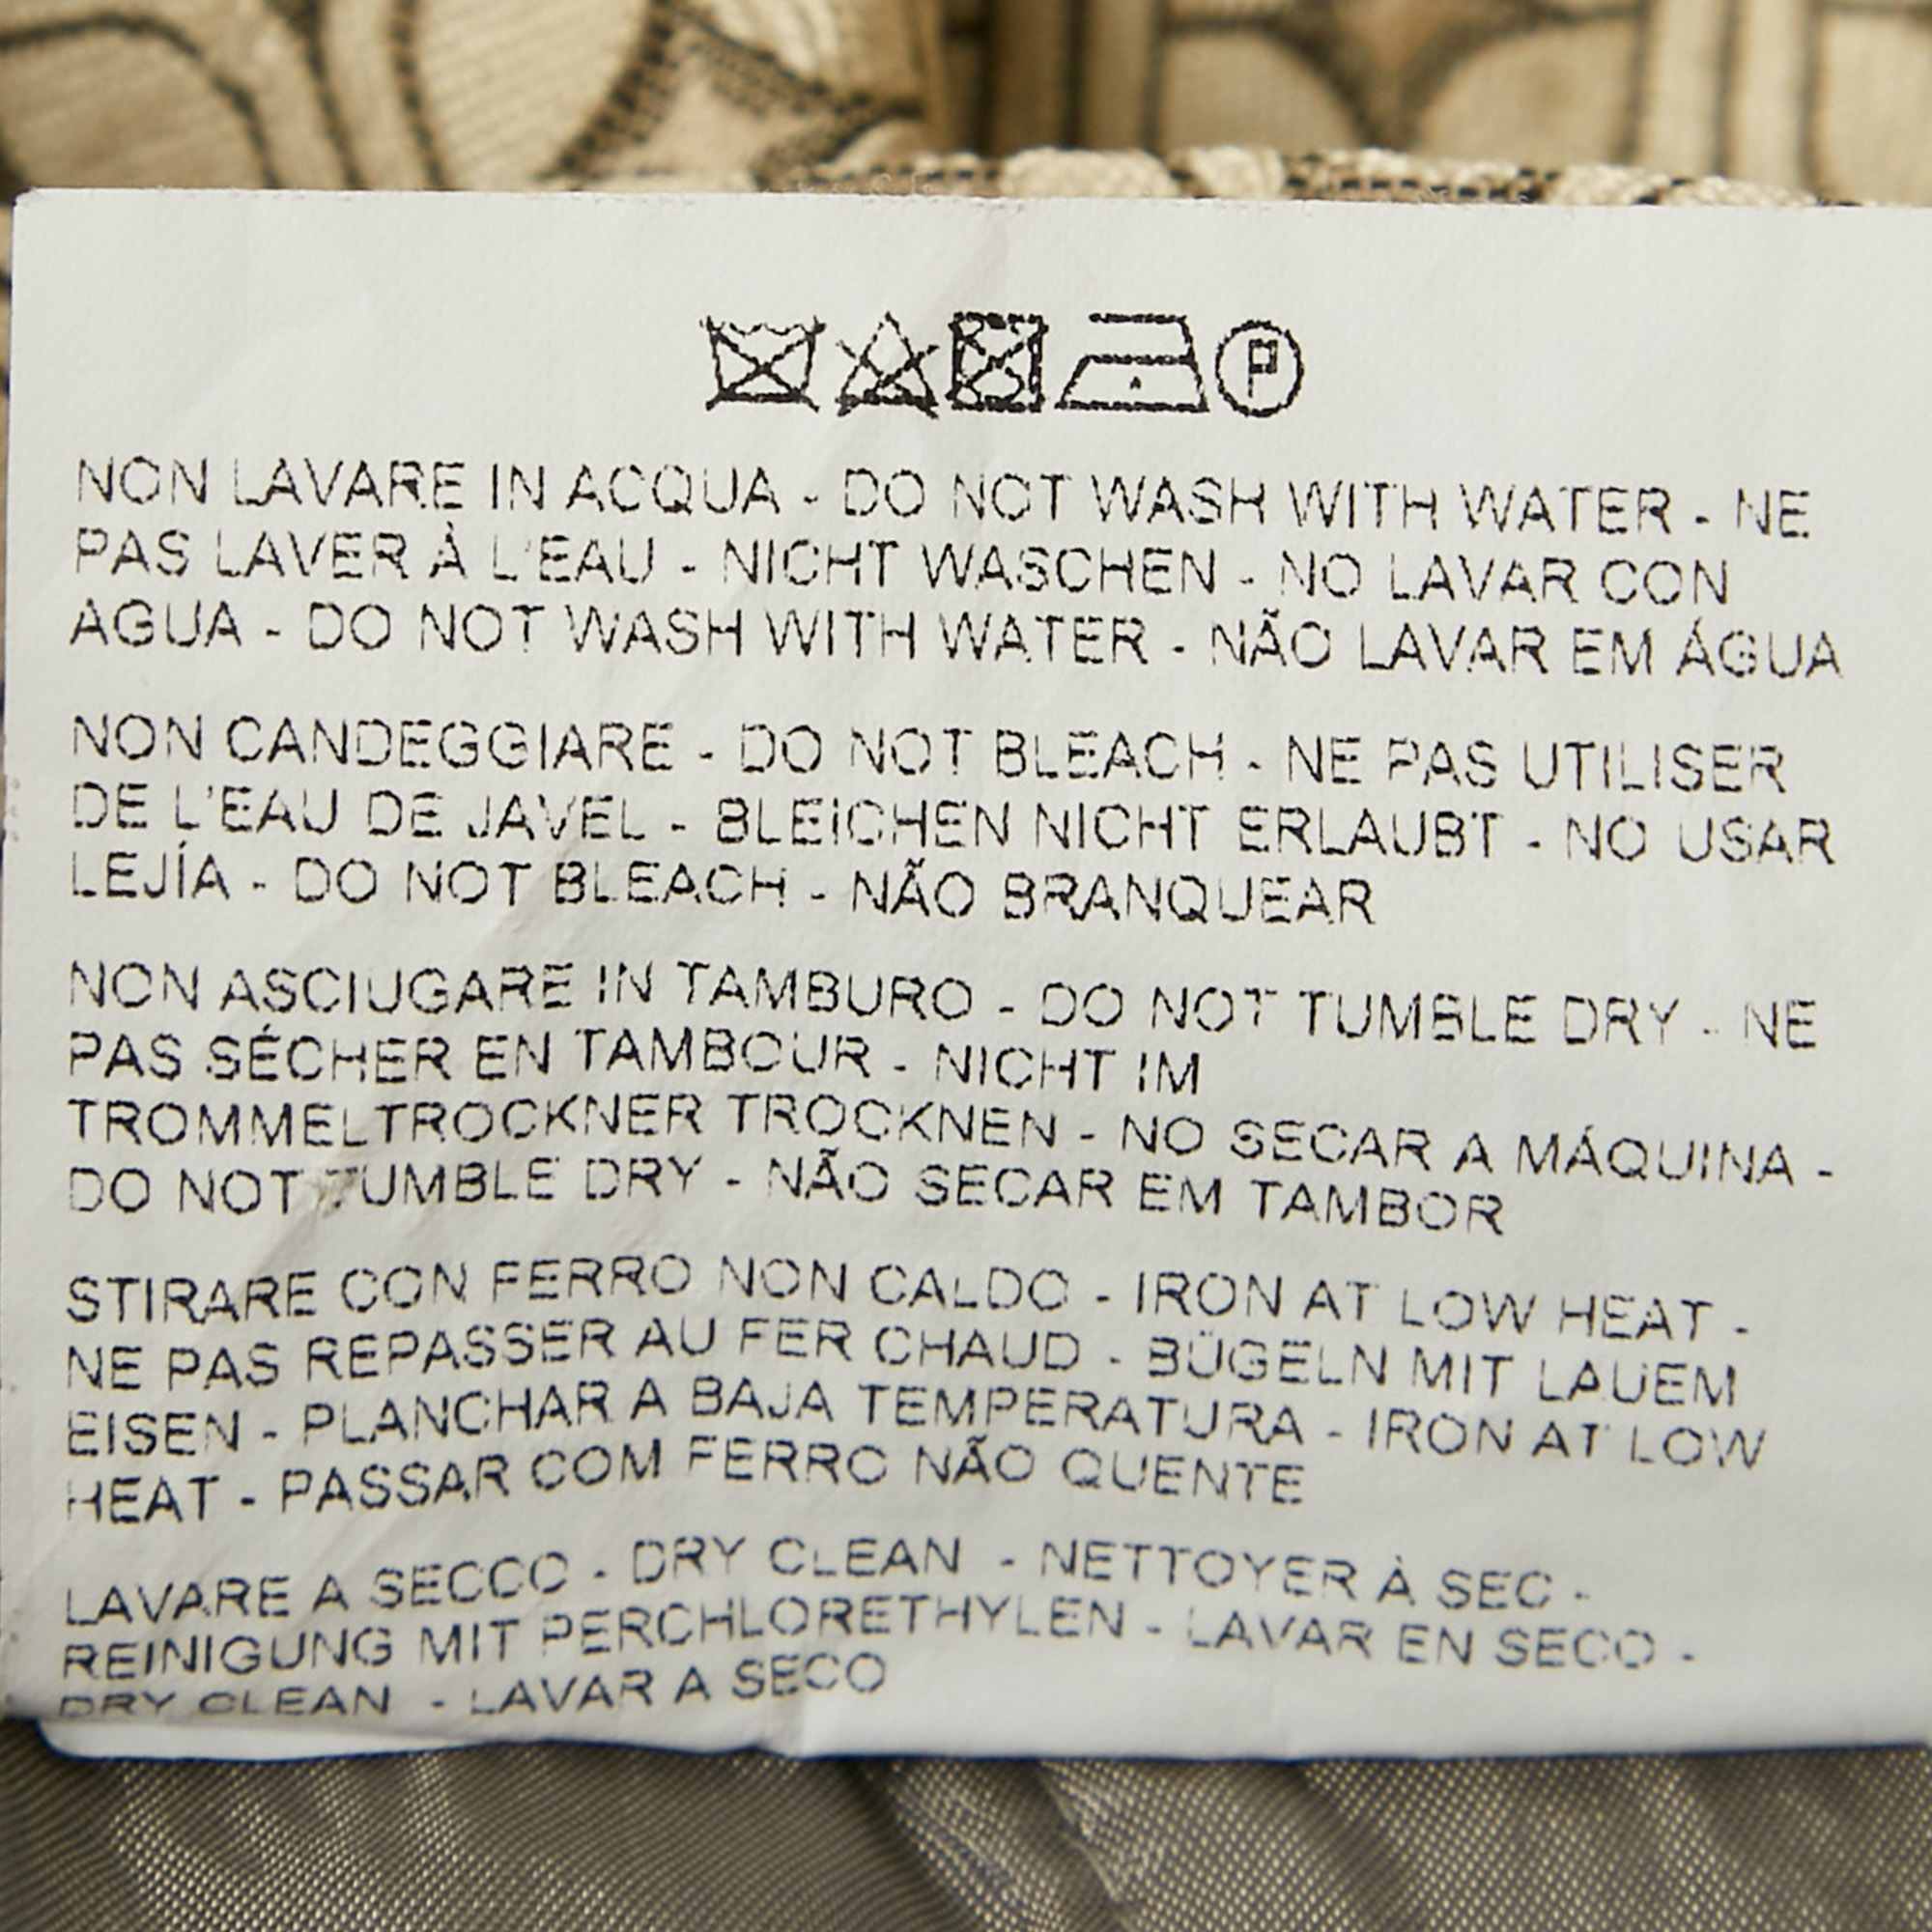 NON LAVARE IN ACQUA - DO NOT WASH WITH WATER - NE
PAS LAVER À L'EAU - NICHT WASCHEN - NO LAVAR CON
AGUA - DO NOT WASH WITH WATER - NÃO LAVAR EM ÁGUA
NON CANDEGGIARE - DO NOT BLEACH - NE PAS UTILISER
DE L'EAU DE JAVEL - BLEICHEN NICHT ERLAUBT - NO USAR
LEJÍA - DO NOT BLEACH - NÃO BRANQUEAR
NON ASCIUGARE IN TAMBURO - DO NOT TUMBLE DRY - NE
PAS SÉCHER EN TAMBOUR - NICHT IM
TROMMELTROCKNER TROCKNEN - NO SECAR A MÁQUINA -
DO NOT TUMBLE DRY - NÃO SECAR EM TAMBOR
STIRARE CON FERRO NON CALDO - IRON AT LOW HEAT -
NE PAS REPASSER AU FER CHAUD - BÜGELN MIT LAUEM
EISEN - PLANCHAR A BAJA TEMPERATURA - IRON AT LOW
HEAT - PASSAR COM FERRO NÃO QUENTE
LAVARE A SECCO - DRY CLEAN - NETTOYER À SEC -
REINIGUNG MIT PERCHLORETHYLEN - LAVAR EN SECO -
DRY CLEAN - LAVAR A SECO